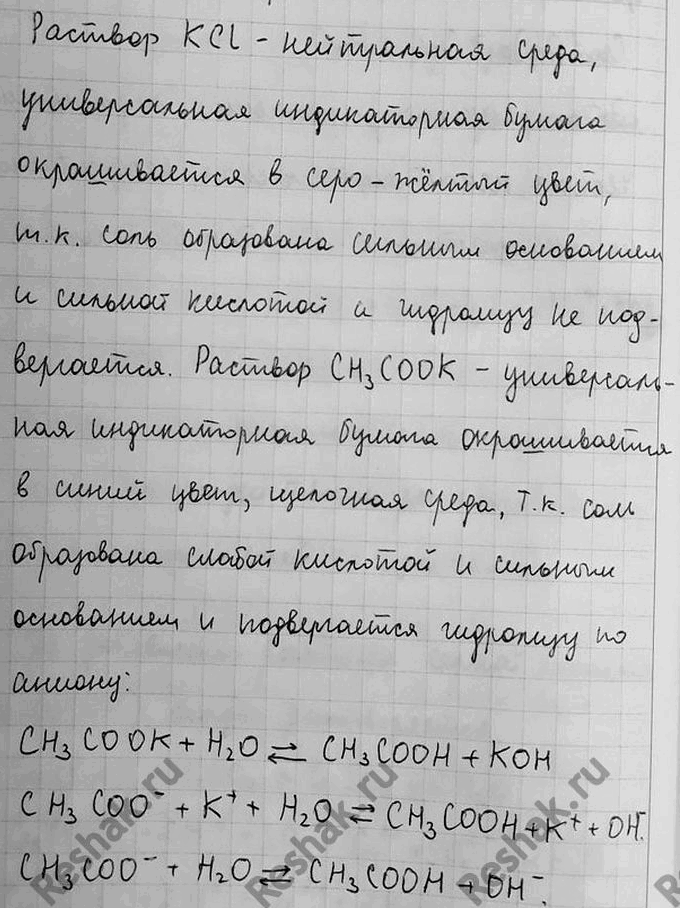 Раствор KCl - нейтральная среда,
универсальная индикаторная бумага
окрашивается в серо-жёлтый цвет,
т.к. соль образована сильным основанием
и сильной кислотой и гидролизу не под-
вергается. Раствор CH₃COOK - универсаль-
ная индикаторная бумага окрашивается
в синий цвет, щелочная среда, т.к. соль
образована слабой кислотой и сильным
основанием и подвергается гидролизу по
аниону:
CH₃COOK + H₂O ⇄ CH₃COOH + KOH
CH₃COO⁻ + K⁺ + H₂O ⇄ CH₃COOH + K⁺ + OH⁻.
CH₃COO⁻ + H₂O ⇄ CH₃COOH + OH⁻.
Reshak.ru
Reshak.ru
Reshak.ru